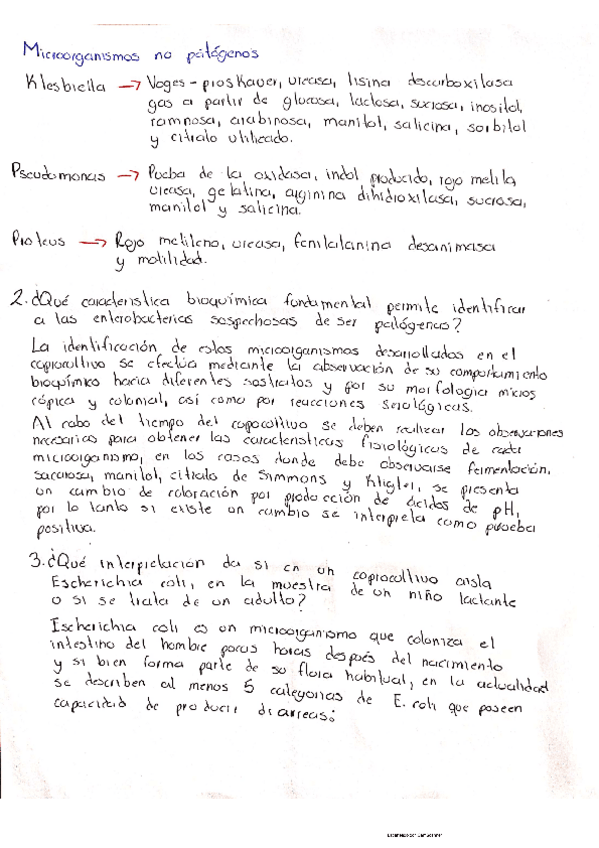 Microorganismos no patógenos
Klesbiella → Voges-proskauer, ureasa, lisina descarboxilasa
gas a partir de glucosa, lactosa, sucrosa, inositol,
ramnosa, arabinosa, manitol, salicina, sorbitol
y citrato utilizado.
Pseudomonas → Pueba de la oxidasa, indol producido, rojo metilo,
ureasa, gelatina, arginina dihidroxilasa, sucrosa,
manitol y salicina.
Proteus → Rojo metileno, ureasa, fenilalanina desanimasa
y motilidad.
2. ¿Qué característica bioquímica fundamental permite identificar
a las enterobacterias sospechosas de ser patógenas?
La identificación de estos microorganismos desarrollados en el
coprocultivo se efectúa mediante la observación de su comportamiento
bioquímico hacia diferentes sustratos y por su morfologia micros
cópica y colonial, así como por reacciones serológicas.
Al cabo del tiempo del coprocultivo se deben realizar las observaciones
necesarias para obtener las características fisiológicas de cada
microorganismo, en los casos donde debe observarse fermentación,
sacarosa, manitol, citrato de Simmons y Kligler, se presenta
un cambio de coloración por producción de ácidos de pH,
por lo tanto si existe un cambio se interpreta como prueba
positiva.
3. ¿Qué interpretación da si en un coprocultivo aisla
Escherichia coli, en la muestra de un niño lactante
o si se trata de un adulto?
Escherichia coli es un microorganismo que coloniza el
intestino del hombre pocas horas después del nacimiento
y si bien forma parte de su flora habitual, en la actualidad
se describen al menos 5 categorías de E. coli que poseen
capacidad de producir diarreas: